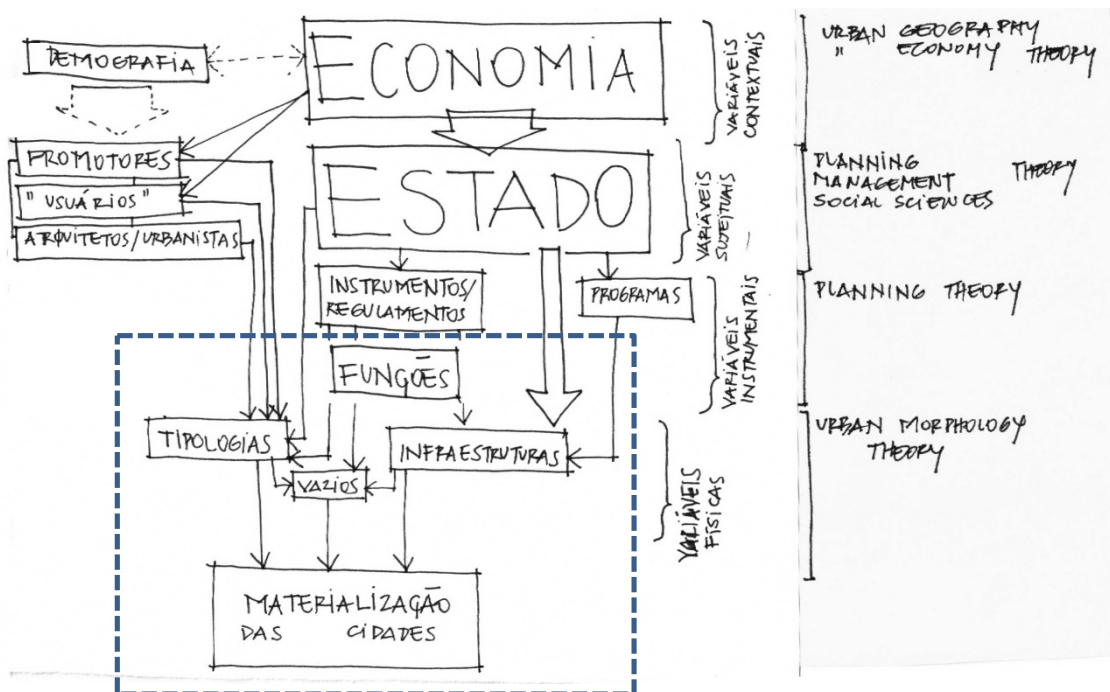 DEMOGRAFIA
ECONOMIA
VARIÁVEIS
CONTEXTUAIS
PROMOTORES
"USUÁRIOS"
ARQUITETOS/URBANISTAS
ESTADO
VARIÁVEIS
SUJEITUAIS
INSTRUMENTOS/
REGULAMENTOS
PROGRAMAS
VARIÁVEIS
INSTRUMENTAIS
FUNÇÕES
TIPOLOGIAS
INFRAESTRUTURAS
VAZIOS
VARIÁVEIS
FÍSICAS
MATERIALIZAÇÃO
DAS CIDADES
URBAN GEOGRAPHY
" ECONOMY THEORY
PLANNING
MANAGEMENT THEORY
SOCIAL SCIENCES
PLANNING THEORY
URBAN MORPHOLOGY
THEORY